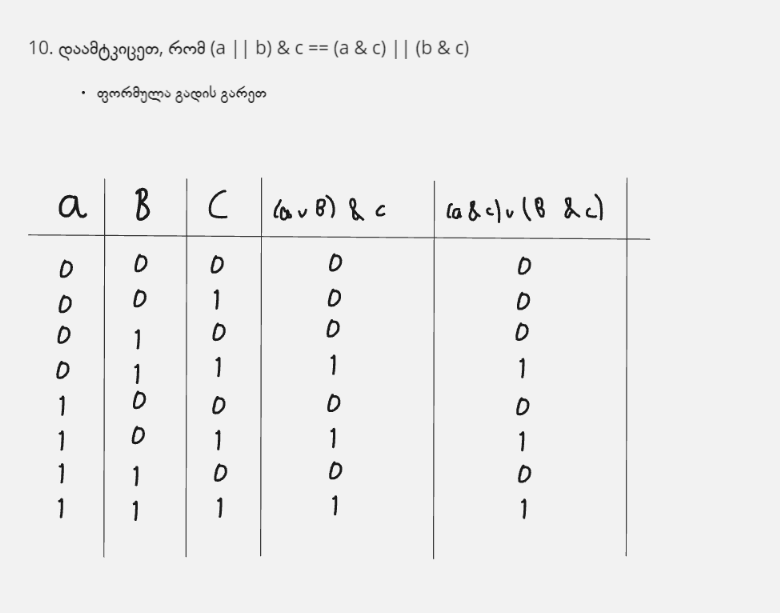 10. დაამტკიცეთ, რომ (a || b) & c == (a & c) || (b & c)
• ფორმულა გადის გარეთ
a B C (a v B) & c (a & c) v (B & c)
0 0 0 0 0
0 0 1 0 0
0 1 0 0 0
0 1 1 1 1
1 0 0 0 0
1 0 1 1 1
1 1 0 0 0
1 1 1 1 1